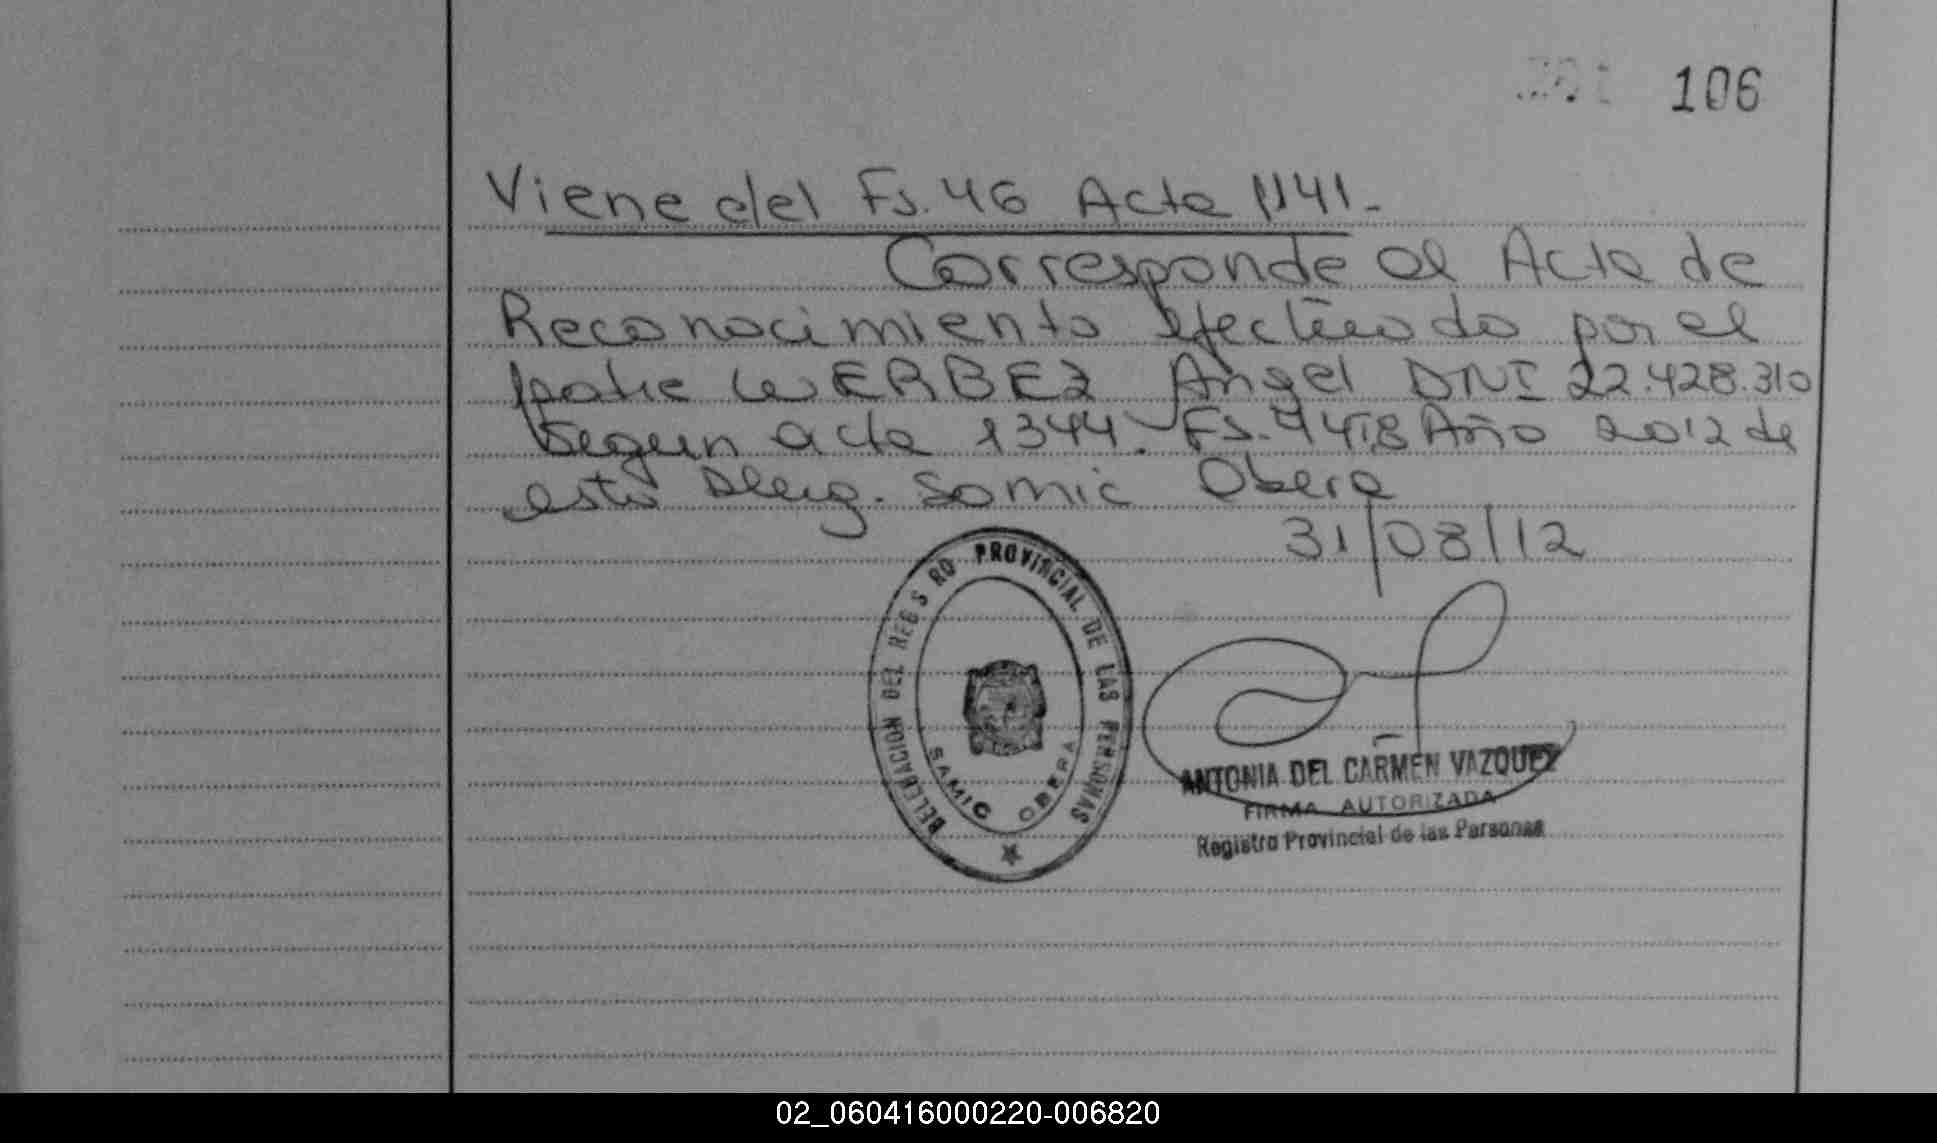 106
Viene del Fs. 46 Acta 1141.-
Corresponde al Acta de
Reconocimiento efectuado por el
padre WERBEZ Angel DNI 22.428.310
Segun acta 1344. Fs. Año 2012 de
esta Deleg. Samic Obera
31/08/12
DELEGACION DEL REGISTRO PROVINCIAL DE LAS PERSONAS
SAMIC OBERA
ANTONIA DEL CARMEN VAZQUEZ
FIRMA AUTORIZADA
Registro Provincial de las Personas
02_060416000220-006820